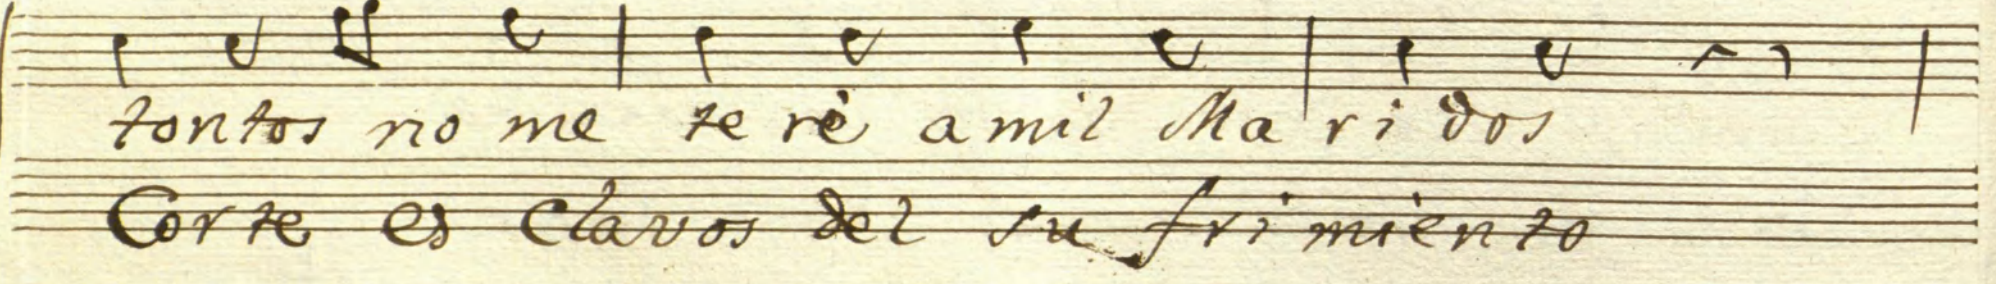 tontos no me te rè a mil Ma ri dos
Cor te es Clavos del su fri mien to